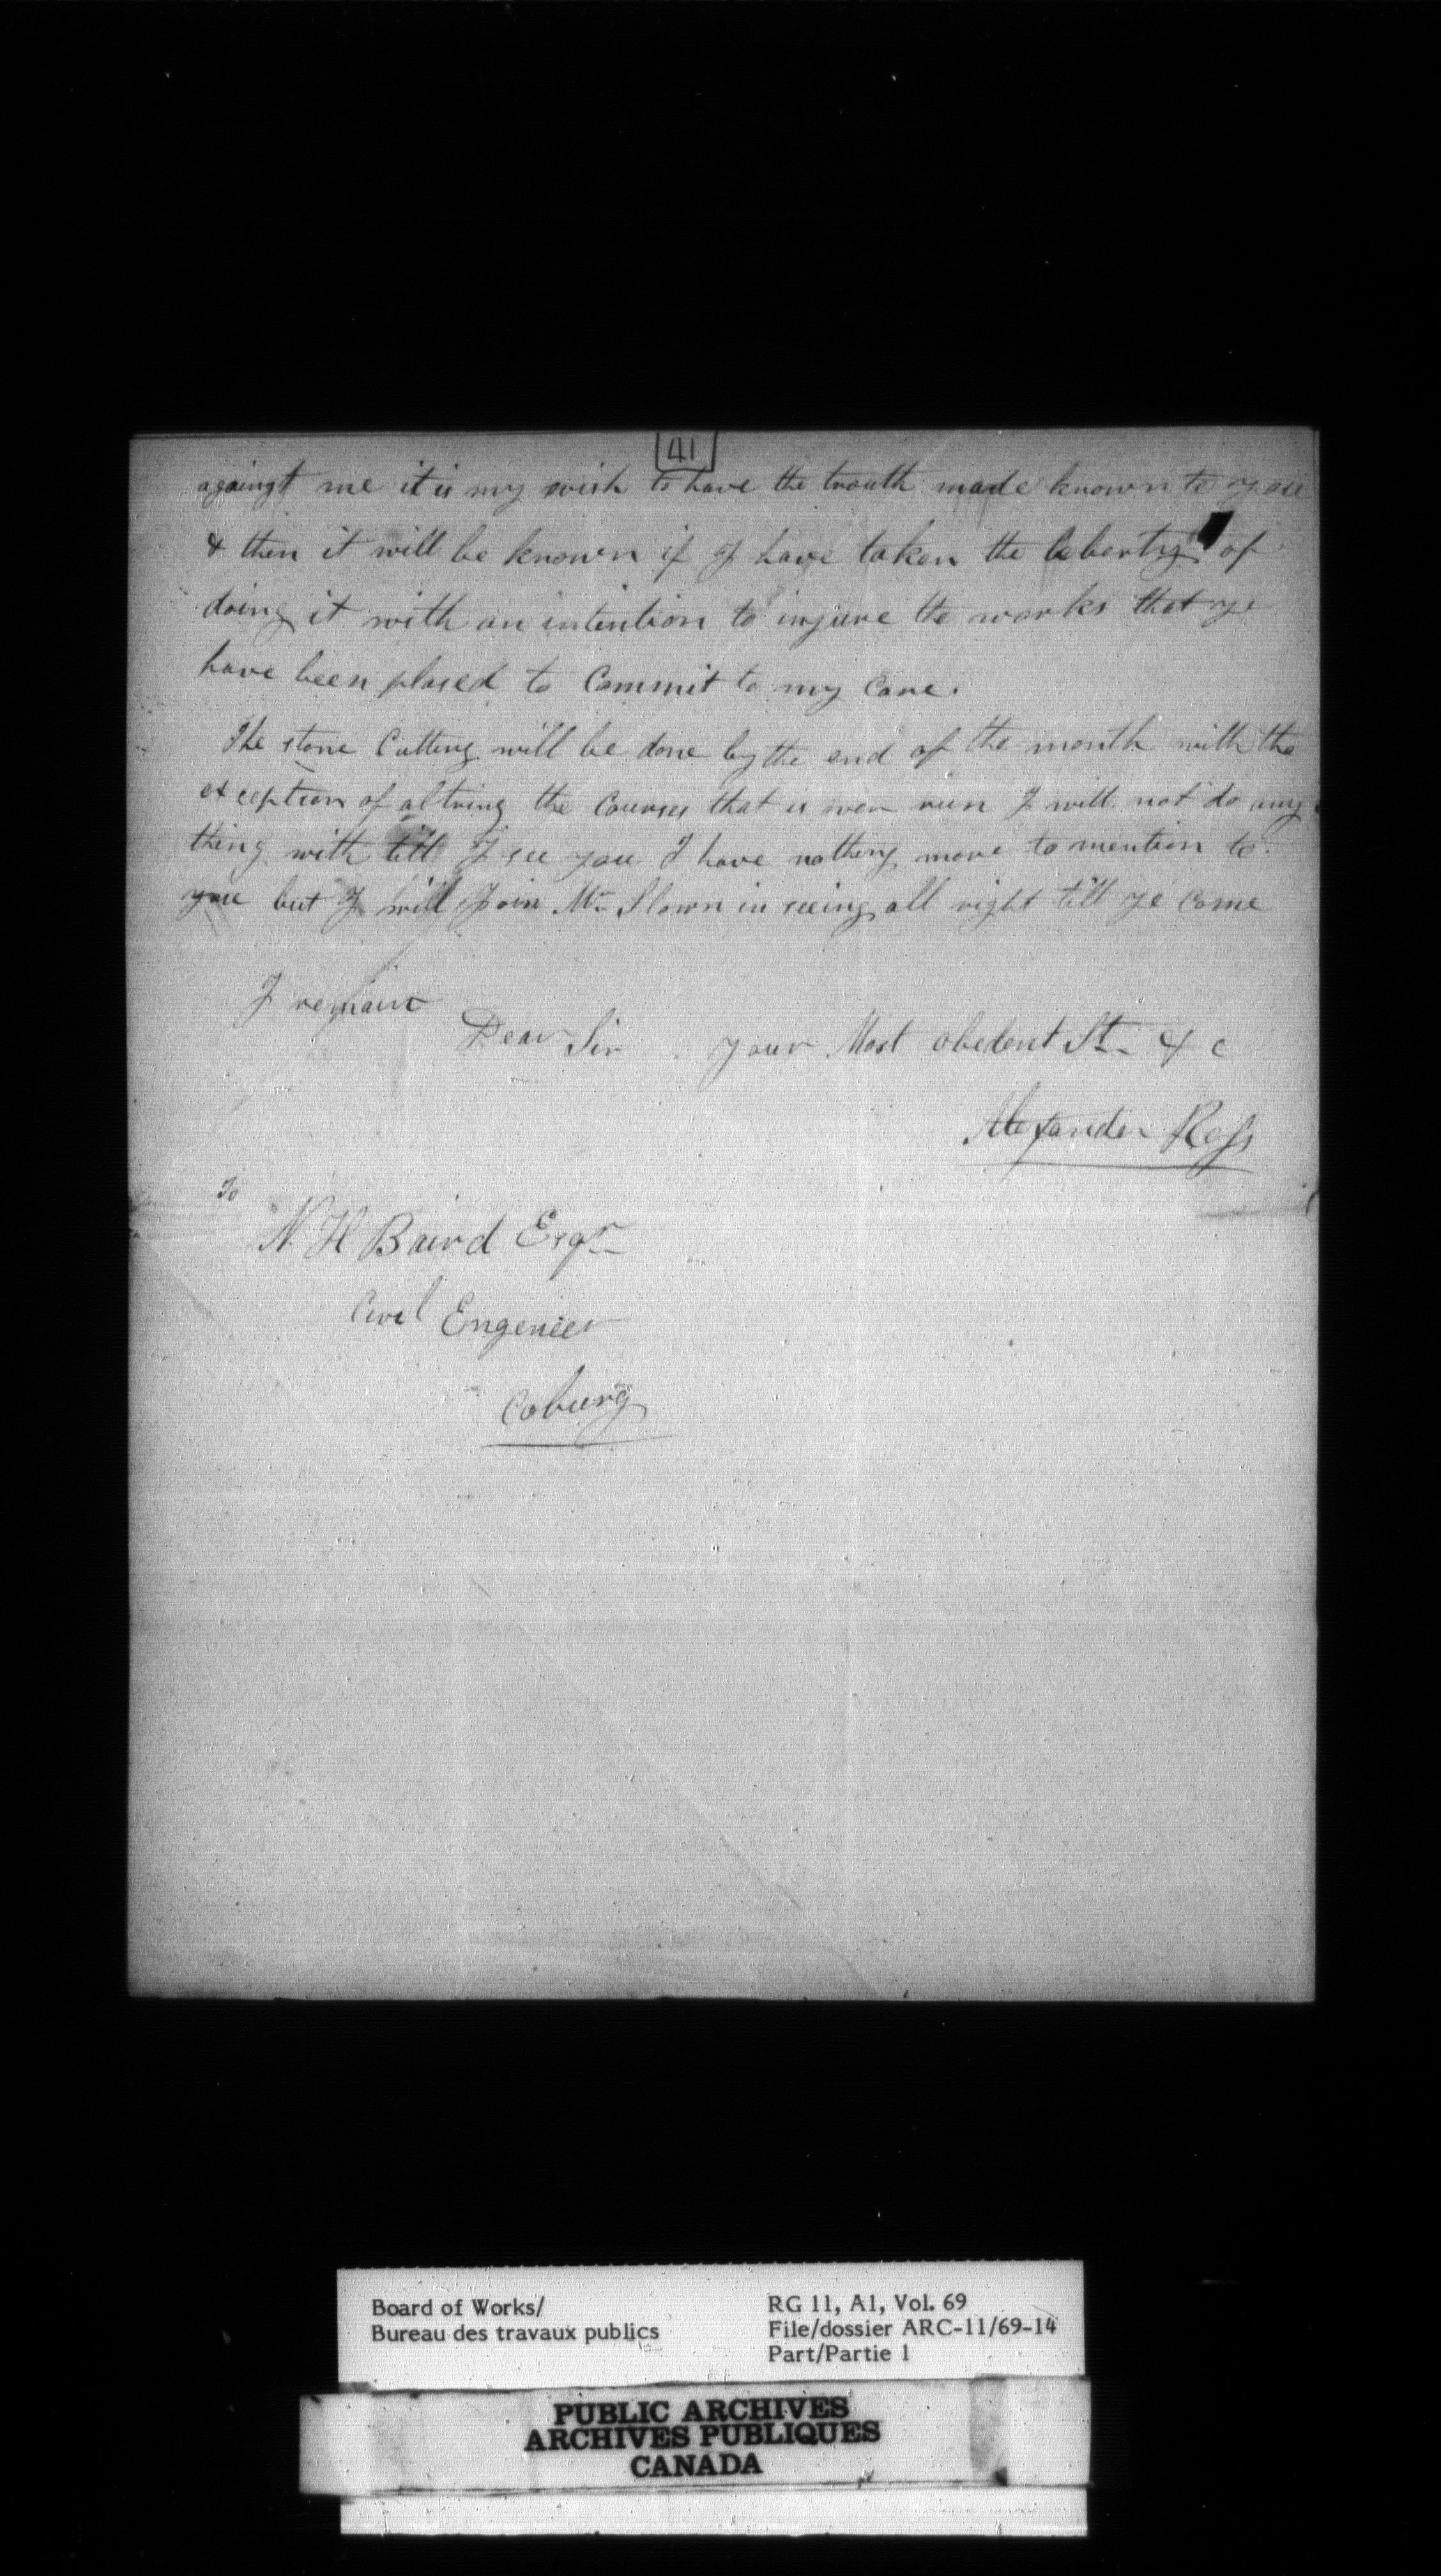 41
against me it is my wish to have the trouth made known to you
& then it will be known if I have taken the leberty of
doing it with an intention to injure the works that ye
have been plased to Commit to my Care.
The stone Cutting will be done by the end of the month with the
exception of altring the Courses that is run I will not do any
thing with till I see you I have nothing more to mention to
you but I will Join Mr Slown in seeing all right till ye Come
I remain
Dear Sir your Most obedent St. & c
Alexander Ross
To
N. H Baird Esqr
Civel Engenier
Coburg
Board of Works/
Bureau des travaux publics
RG 11, A1, Vol. 69
File/dossier ARC-11/69-14
Part/Partie 1
PUBLIC ARCHIVES
ARCHIVES PUBLIQUES
CANADA